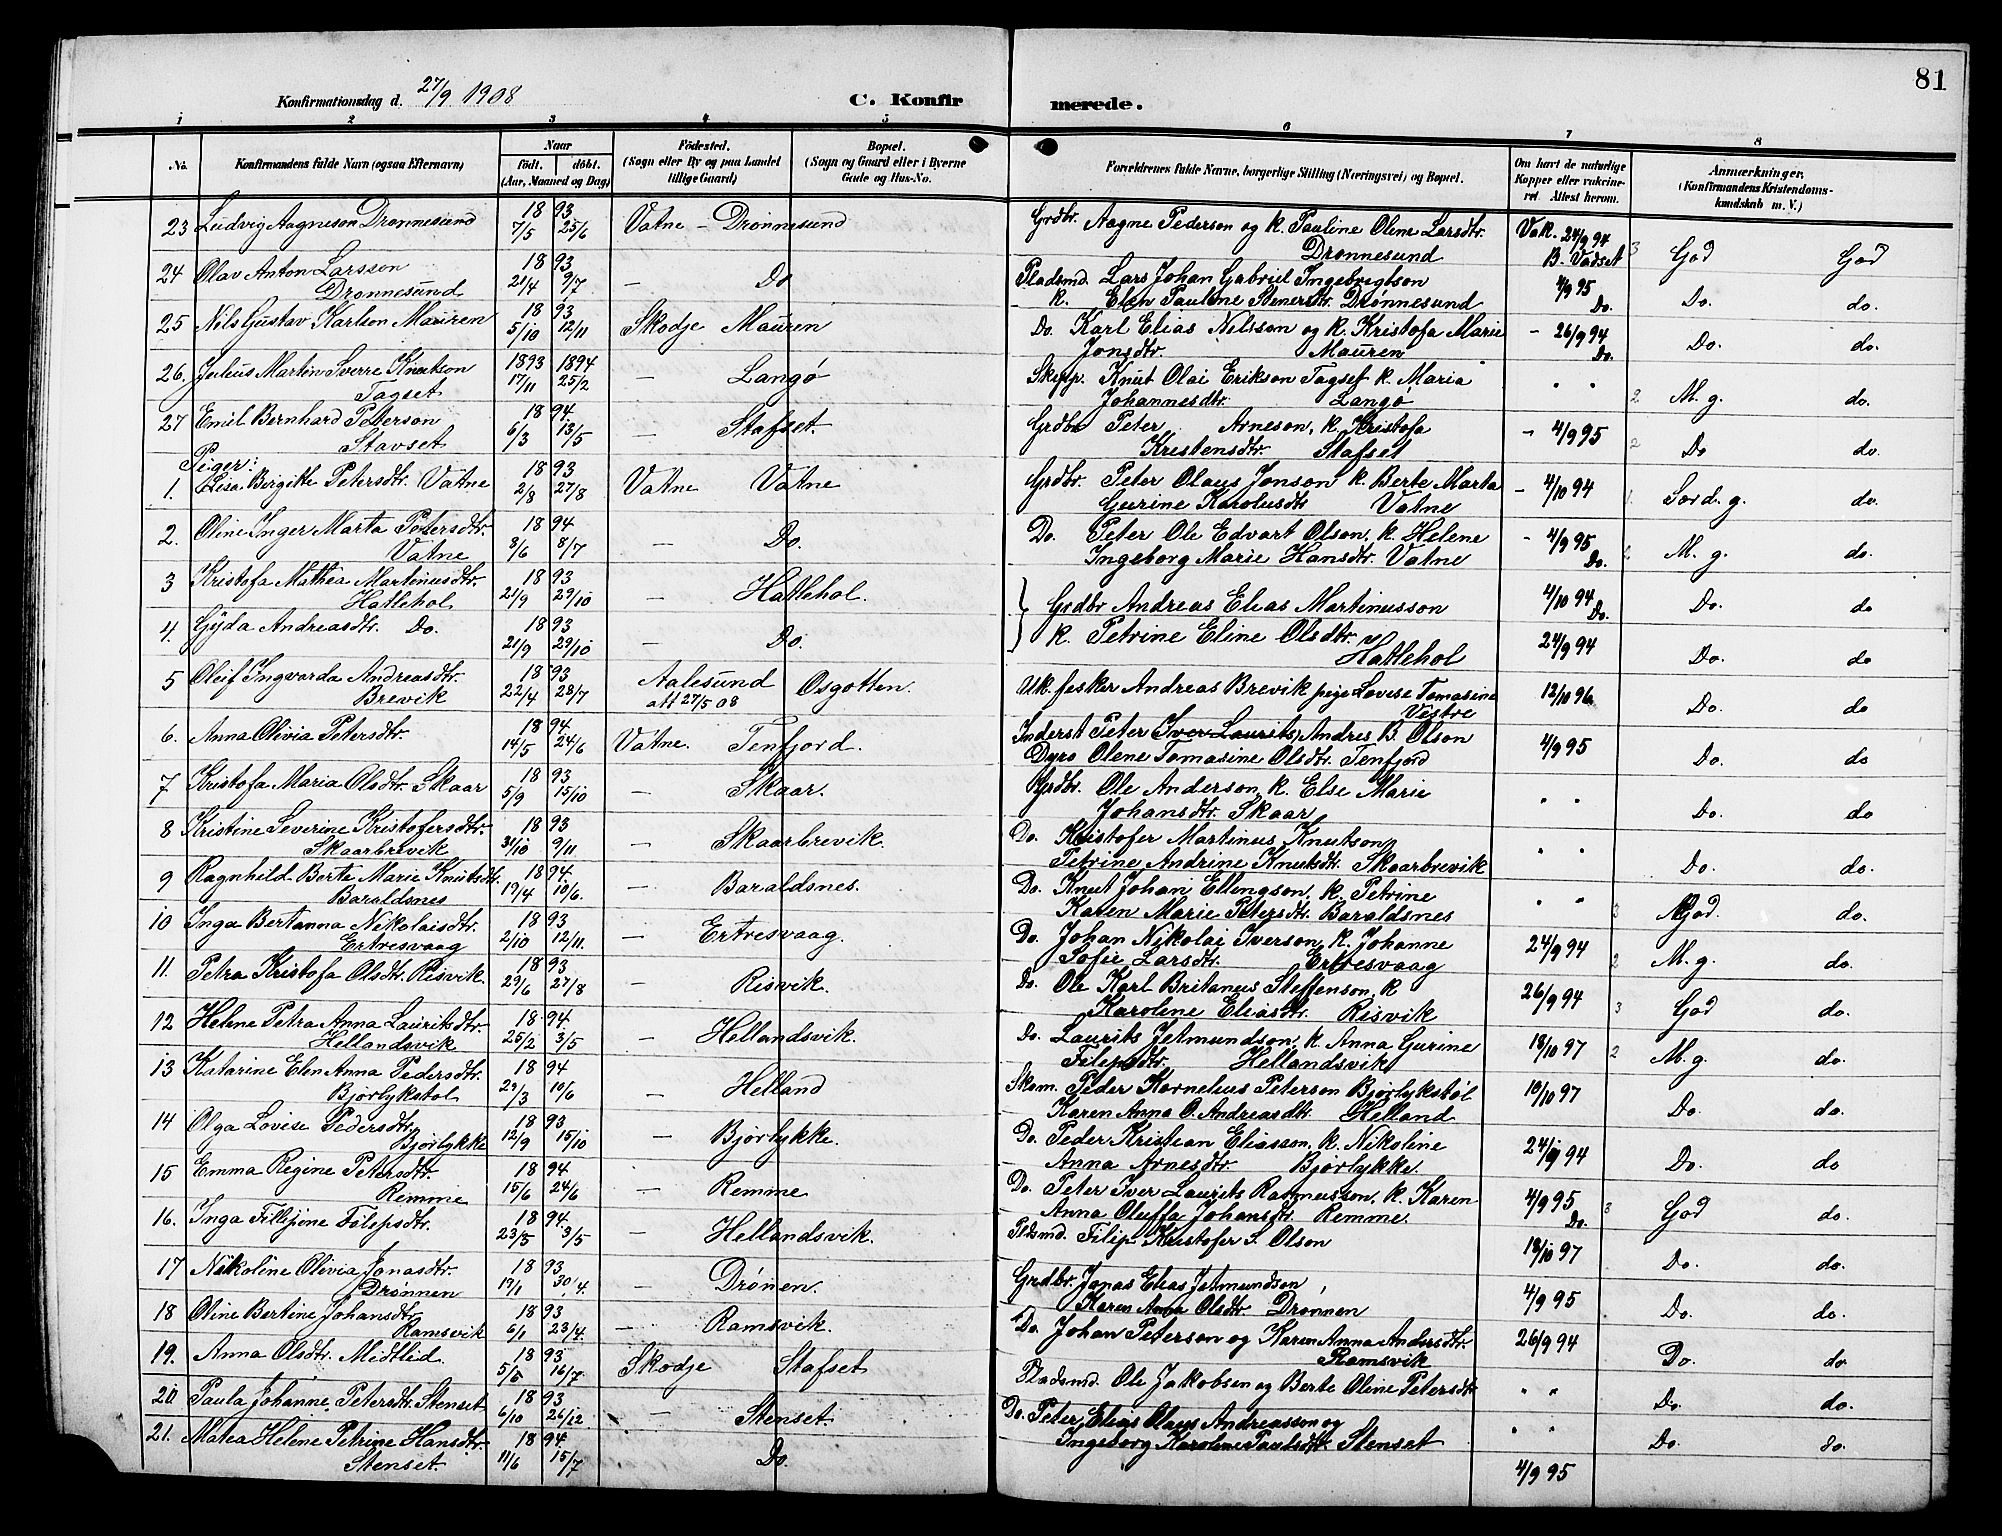 81
Konfirmationsdag d. 27/9 1908 C. Konfirmerede.
1 2 3 4 5 6 7 8
No. Konfirmandens fulde Navn (ogsaa Efternavn) Naar født. døbt. (Aar, Maaned og Dag) Födested. (Sogn eller By og paa Landet tillige Gaard) Bopæl. (Sogn og Gaard eller i Byerne Gade og Hus-No. Forældrenes fulde Navne, borgerlige Stilling (Næringsvei) og Bopæl. Om havt de naturlige Kopper eller vakcineret. Attest herom. Anmærkninger, (Konfirmandens Kristendomskundskab m. V.)
23 Ludvig Aagneson Drønnesund 1893 7/5 25/6 Vatne - Drønnesund Grdbr. Aagne Pederson og k. Pauline Oline Larsdtr. Vak. 24/9 94 3 God God
Drønnesund B. Vadset
24 Olav Anton Larsson 1893 21/4 9/7 — Do Pladsmd. Lars Johan Gabriel Ingebrigtson 4/9 95 Do. do.
Drønnesund k. Elen Pauline Stenersdtr. Drønnesund Do.
25 Nils Gustav Karlson Mauren 1893 5/10 12/11 Skodje Mauren Do. Karl Elias Nilsson og k. Kristofa Marie - 26/9 94 Do. do.
Jonsdtr. Mauren Do.
26. Julius Martin Sverre Knutson 1893 1894 17/11 25/2 — Langø Skipp. Knut Olai Erikson Tagset k. Maria " " 2 M. g. do.
Tagset Johannesdtr. Langø
27 Emil Bernhard Peterson 1894 6/3 13/5 — Stafset. Grdbr Peter Arneson, k. Kristofa - 4/9 95 2 Do do.
Stavset Kristensdtr. Stafset
Piger:
1. Lisa Bergitte Petersdtr. Vatne 1893 2/8 27/8 Vatne Vatne Grdbr. Peter Olaus Jonson k. Berte Marta - 4/10 94 1 Særd. g. do.
Gurine Karolusdtr Vatne
2. Oline Inger Marta Petersdtr. 1894 8/6 8/7 — Do. Do. Peter Ole Edvart Olson, k. Helene - 4/9 95 2 M. g. do.
Vatne Ingeborg Marie Hansdtr. Vatne Do.
3 Kristofa Mathea Martinusdtr. 1893 21/9 29/10 — Hatlehol. } Grdbr Andreas Elias Martinusson 4/10 94 Do. do
Hatlehol Do.
4. Gyda Andreasdtr. Do. 1893 21/9 29/10 — Do. k. Petrine Eline Olsdtr. 24/9 94 Do. do
Hatlehol
5 Oleif Ingvarda Andreasdtr. 1893 22/4 28/7 Aalesund Osgotten. Uk. fisker Andreas Brevik pige Lovise Tomasine 12/10 96 Do. do
Brevik att 27/5 08 Vestre
6. Anna Olivia Petersdtr. 1894 14/5 24/6 Vatne. Tenfjord. Inderst Peter Iver Laurits, Andres B. Olson 4/9 95 Do. do
Dyro Olene Tomasine Olsdtr. Tenfjord
7 Kristofa Maria Olsdtr. Skaar 1893 5/9 15/10 — Skaar. Grdbr. Ole Anderson, k. Else Marie " " Do. do
Johansdtr. Skaar
8 Kristine Severine Kristofersdtr. 1893 31/10 9/11 — Skaarbrevik. Do. Kristofer Martinus Knutson " " Do. do.
Skaarbrevik Petrine Andrine Knutsdtr. Skaarbrevik
9 Ragnhild Berte Marie Knutsdtr. 1894 19/4 10/6. — Baraldsnes. Do. Knut Johan Ellingson, k. Petrine " " 3 God. do.
Baraldsnes Karen Marie Petersdtr. Baraldsnes
10 Inga Bertanna Nikolaisdtr. 1893 2/10 12/11. — Ertresvaag. Do. Johan Nikolai Iverson, k. Johanne 24/9 94 2 M. g. do.
Ertresvaag Sofie Larsdtr. Ertresvaag
11. Petra Kristofa Olsdtr. Risvik. 1893 29/6 27/8 — Risvik. Do. Ole Karl Britanus Steffenson, k 26/9 94 3 God do.
Karoline Eliasdtr. Risvik
12 Helene Petra Anna Lauritsdtr. 1894 25/2 3/5 — Hellandsvik. Do. Laurits Jetmundson, k. Anna Gurine 18/10 97 2 M. g. do.
Hellandsvik Filipsdtr. Hellandsvik
13 Katarine Elen Anna Pedersdtr. 1894 29/3 10/6 — Helland Skom. Peder Kornelius Peterson Bjørlykstøl 10/10 97 Do. do.
Bjørlykstøl Karen Anna O. Andreasdtr. Helland
14 Olga Lovise Pedersdtr. 1893 12/9 15/10 — Bjørlykke. Do. Peder Kristian Eliasson, k. Nikoline 24/9 94 Do. do
Bjørlykke Anna Arnesdtr Bjørlykke.
15 Emma Regine Petersdtr. 1894 15/6 24/6 — Remme Do. Peter Iver Laurits Rasmusson, k. Karen 4/9 95 3 God do.
Remme Anna Oluffa Johansdtr. Remme. Do.
16. Inga Fillipine Filipsdtr. 1894 3/5 — Hellandsvik. Pldsmd. Filip Kristofer S. Olson 18/10 97 Do. do.
17 Nikoline Olivia Jonasdtr. 1893 19/1 30/4. — Drønen. Grdbr. Jonas Elias Jetmundson 4/9 95 Do. do.
Drønnen Karen Anna Olsdtr. Drønnen
18 Oline Bertine Johansdtr. 1893 6/1 23/4. — Ramsvik. Do. Johan Peterson og Karen Anna Andersdtr. 26/9 94 Do. do
Ramsvik Ramsvik
19. Anna Olsdtr. Midtlid. 1893 16/7 Skodje Stafset Pladsmd. Ole Jakobsen og Berte Oline Petersdtr " " Do. do.
20 Paula Johanne, Petersdtr. Stenset 1893 6/10 26/12 — Stenset. Do. Peter Elias Olaus Andreasson og " " Do. do.
Ingeborg Karoline Paulsdtr. Stenset
21. Matea Helene Petrine Hansdtr. 1894 11/6 15/7 Do. 4/9 95
Stenset.